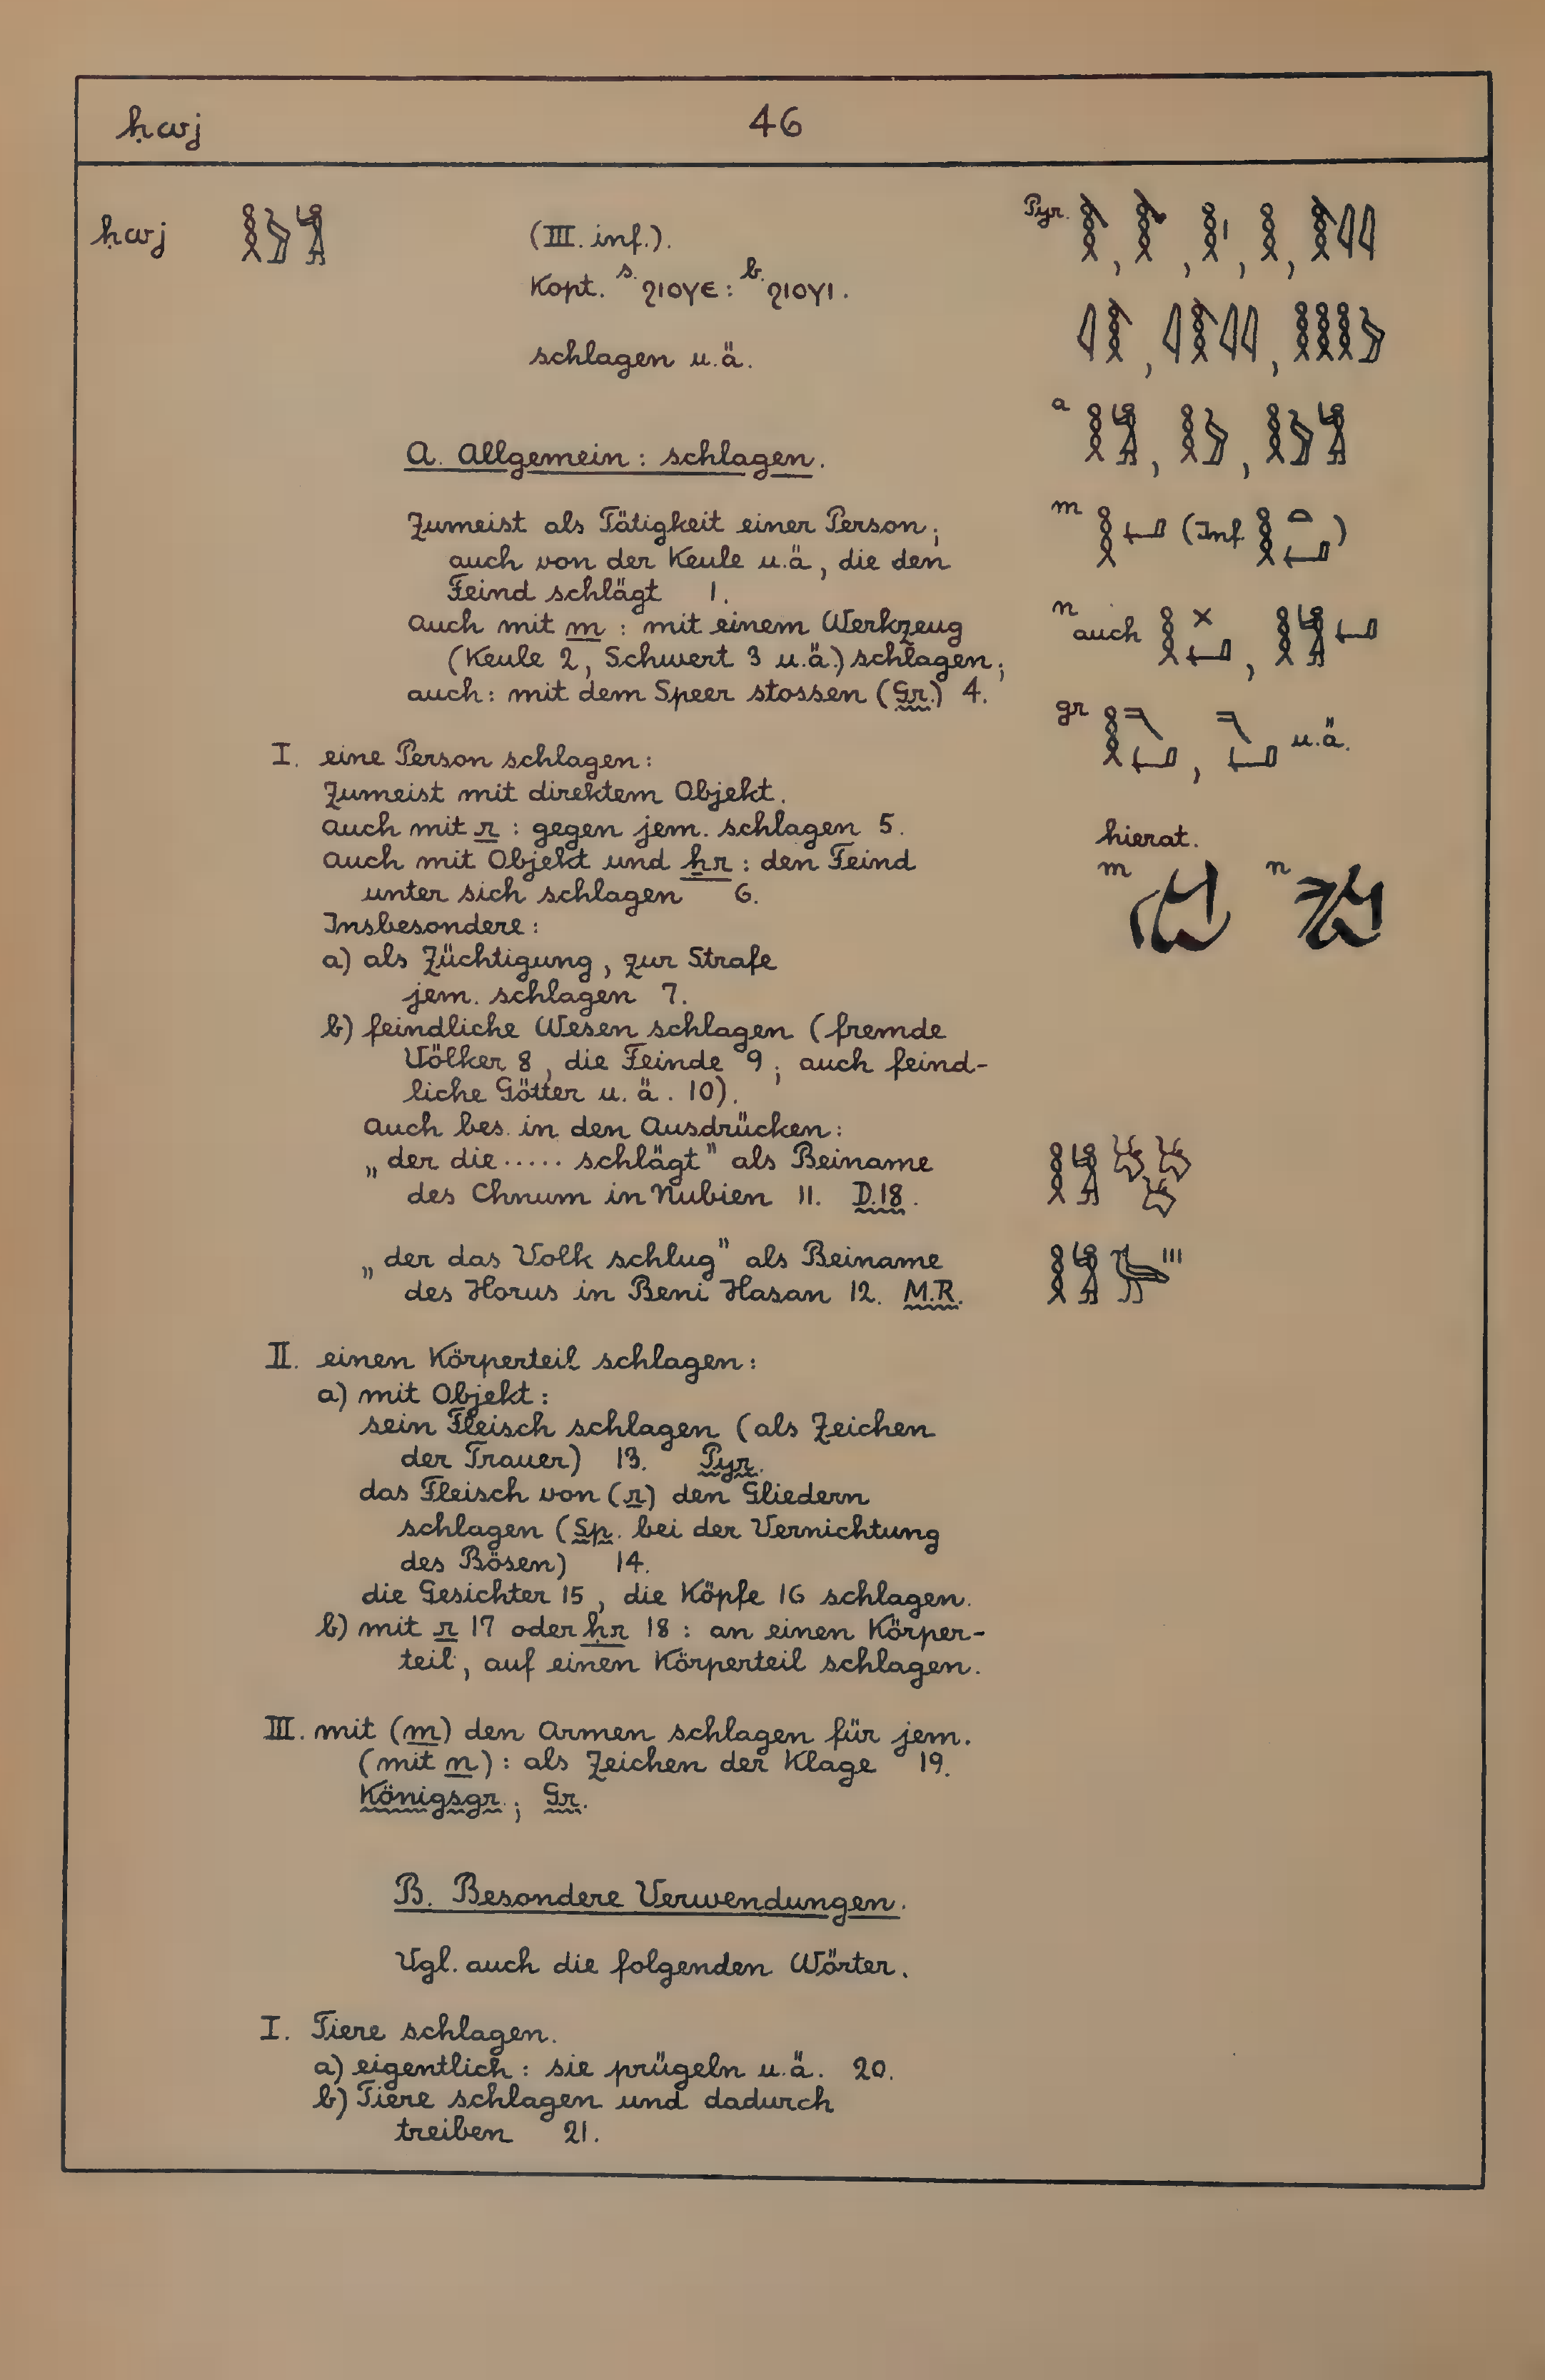 ḥwj 46
ḥwj (III. inf.).
Kopt. s. ϩⲓⲟⲩⲉ : b. ϩⲓⲟⲩⲓ.
schlagen u.ä.
Pyr.
a
m (Inf. )
n auch
gr u.ä.
hierat.
m n
A. Allgemein : schlagen.
Zumeist als Tätigkeit einer Person;
auch von der Keule u.ä, die den
Feind schlägt 1.
auch mit m : mit einem Werkzeug
(Keule 2, Schwert 3 u.ä.) schlagen;
auch: mit dem Speer stossen (Gr.) 4.
I. eine Person schlagen:
Zumeist mit direktem Objekt.
auch mit r : gegen jem. schlagen 5.
auch mit Objekt und ẖr : den Feind
unter sich schlagen 6.
Insbesondere:
a) als Züchtigung, zur Strafe
jem. schlagen 7.
b) feindliche Wesen schlagen (fremde
Völker 8, die Feinde 9; auch feind-
liche Götter u. ä. 10).
auch bes. in den Ausdrücken:
„der die..... schlägt" als Beiname
des Chnum in Nubien 11. D.18.
„der das Volk schlug" als Beiname
des Horus in Beni Hasan 12. M.R.
II. einen Körperteil schlagen:
a) mit Objekt:
sein Fleisch schlagen (als Zeichen
der Trauer) 13. Pyr.
das Fleisch von (r) den Gliedern
schlagen (Sp. bei der Vernichtung
des Bösen) 14.
die Gesichter 15, die Köpfe 16 schlagen.
b) mit r 17 oder ḥr 18 : an einen Körper-
teil, auf einen Körperteil schlagen.
III. mit (m) den Armen schlagen für jem.
(mit n) : als Zeichen der Klage 19.
Königsgr.; Gr.
B. Besondere Verwendungen.
Vgl. auch die folgenden Wörter.
I. Tiere schlagen.
a) eigentlich : sie prügeln u.ä. 20.
b) Tiere schlagen und dadurch
treiben 21.